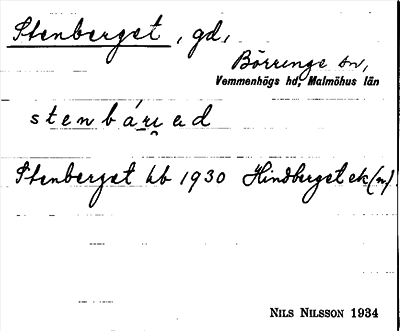 Stenberget, gd,
Börringe sn,
Vemmenhögs hd, Malmöhus län
stenbáru̯ad
Stenberget kb 1930 Hindberget ek (n).
NILS NILSSON 1934